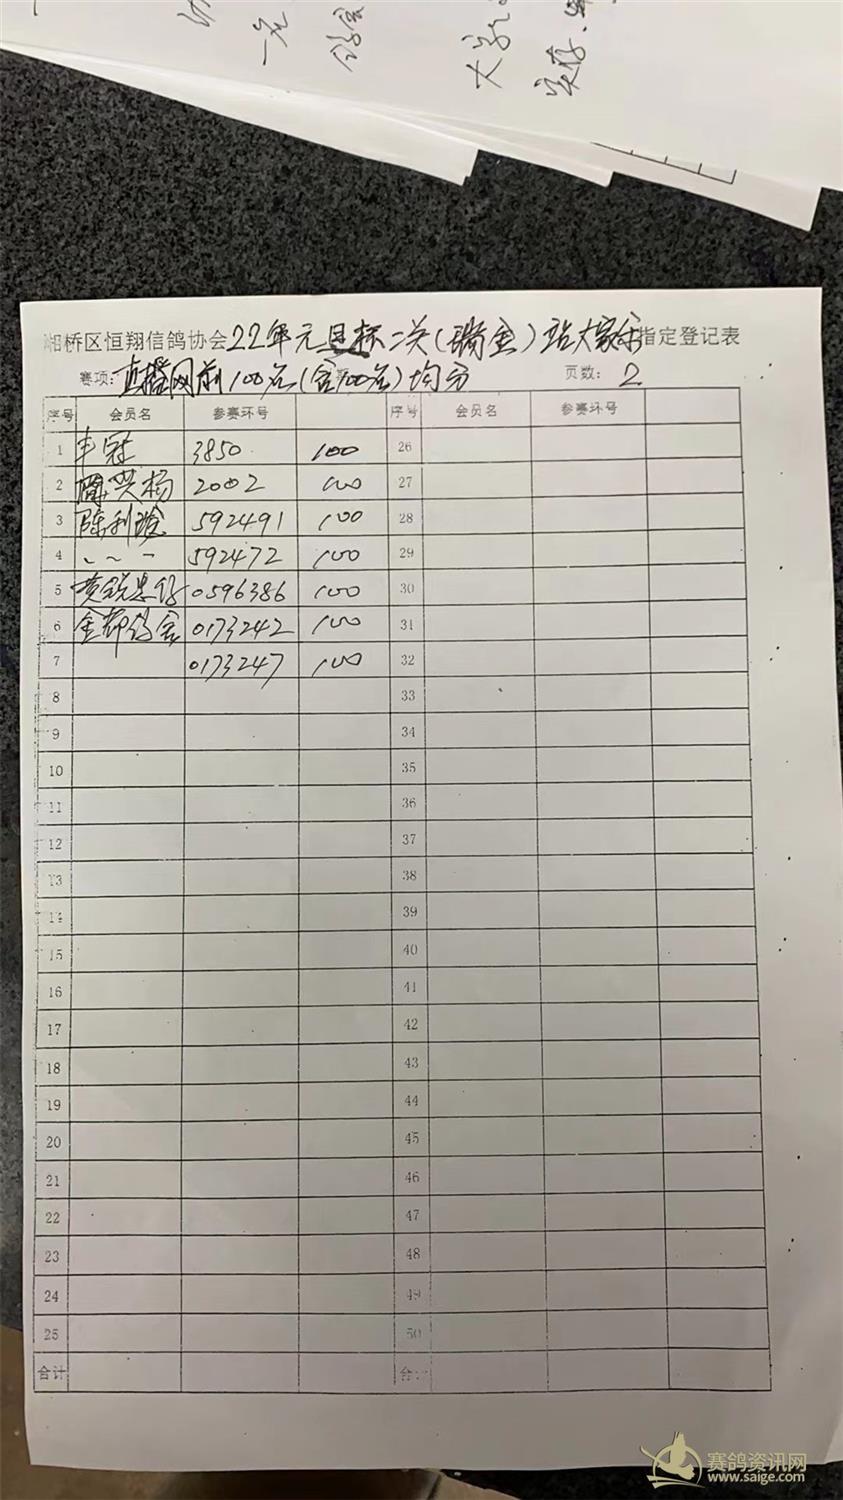 一名
大家
湘桥区恒翔信鸽协会22年元旦杯二关(瑞金)站大家乐指定登记表
赛项: 直播网前100名(含100名)均分 页数: 2
序号 会员名 参赛环号 序号 会员名 参赛环号
1 丰冠 3850 100 26
2 陈兴杨 2002 100 27
3 陈利 592491 100 28
4 〃 〃 〃 592472 100 29
5 黄 0596386 100 30
6 金都鸽舍 0173242 100 31
7 0173247 100 32
8 33
9 34
10 35
11 36
12 37
13 38
14 39
15 40
16 41
17 42
18 43
19 44
20 45
21 46
22 47
23 48
24 49
25 50
合计 合计
赛鸽资讯网
www.saige.com